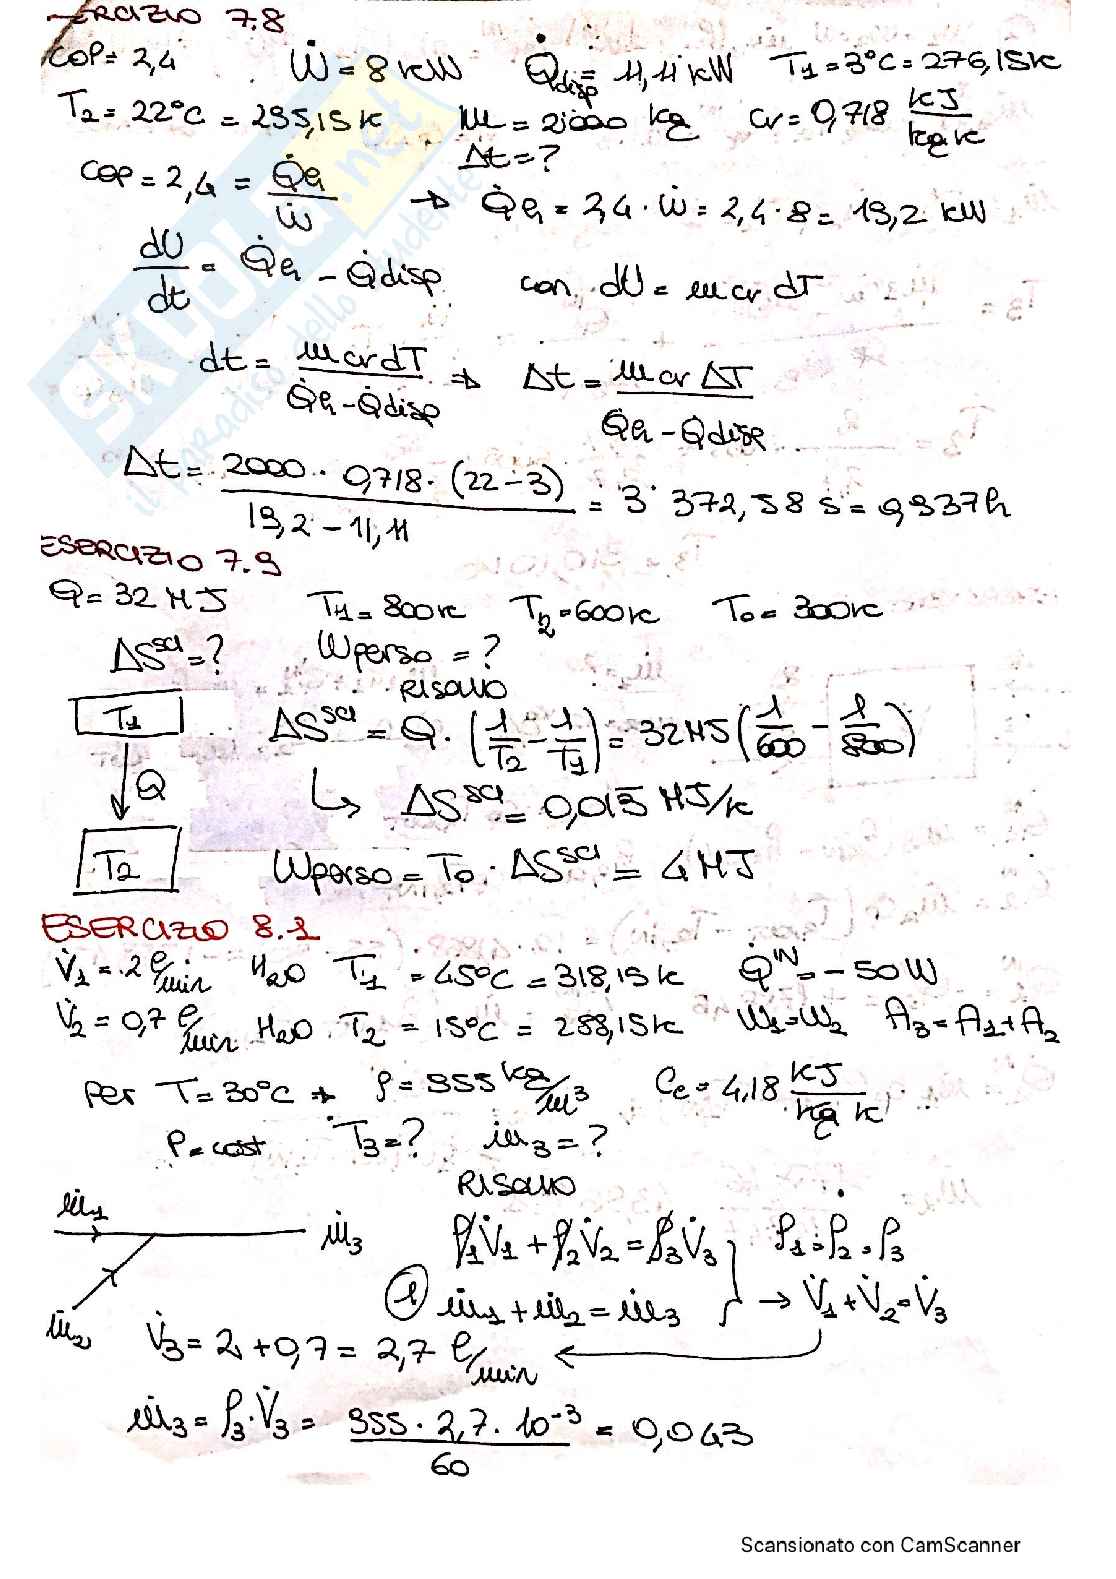 ERCIZIO 7.8
COP= 2,4 Ẇ = 8 kW Q̇disp= 11,11 kW T1=3°C= 276,15K
T2= 22°C = 295,15K m = 2000 kg cv= 0,718 kJ/kg K
Δt=?
COP = 2,4 = Q̇H/Ẇ → Q̇H = 2,4 · Ẇ = 2,4 · 8 = 19,2 kW
dU/dt = Q̇H - Q̇disp con dU = m cv dT
dt = m cv dT/(Q̇H - Q̇disp) ⇒ Δt = m cv ΔT/(Q̇H - Q̇disp)
Δt = 2000 · 0,718 · (22-3)/(19,2 - 11,11) = 3'372,58 s = 0,937h
ESERCIZIO 7.9
Q= 32 MJ T1 = 800K T2 = 600K T0 = 300K
ΔSsci = ? Wperso = ?
RISOLVO
T1 ΔSsci = Q · (1/T2 - 1/T1) = 32MJ (1/600 - 1/800)
Q ↳ ΔSsci = 0,013 MJ/K
T2 Wperso = T0 · ΔSsci = 4 MJ
ESERCIZIO 8.1
V̇1 = 2 l/min H2O T1 = 45°C = 318,15K Q̇IN = -50W
V̇2 = 0,7 l/min H2O T2 = 15°C = 288,15K W1=W2 A3=A1+A2
Per T= 30°C → ρ= 995 kg/m3 Cc = 4,18 kJ/kg K
P=cost T3=? ṁ3=?
RISOLVO
ṁ1 ṁ3 ρ1V̇1 + ρ2V̇2 = ρ3V̇3 ρ1=ρ2=ρ3
1 ṁ1 + ṁ2 = ṁ3 → V̇1 + V̇2 = V̇3
ṁ2 V̇3 = 2 + 0,7 = 2,7 l/min
ṁ3 = ρ3 · V̇3 = 995 · 2,7 · 10-3/60 = 0,043
SKUOLA.net
il paradiso dello studente
Scansionato con CamScanner